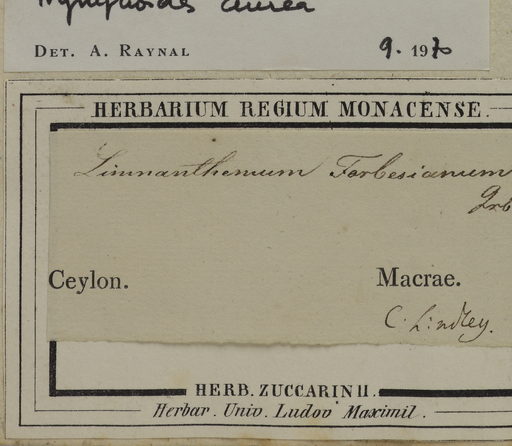 Nymphoides aurea
DET. A. RAYNAL 9. 1970
HERBARIUM REGIUM MONACENSE.
Limnanthemum Forbesianum
Grb
Ceylon. Macrae.
C. Lindley.
HERB. ZUCCARINII.
Herbar. Univ. Ludov Maximil.